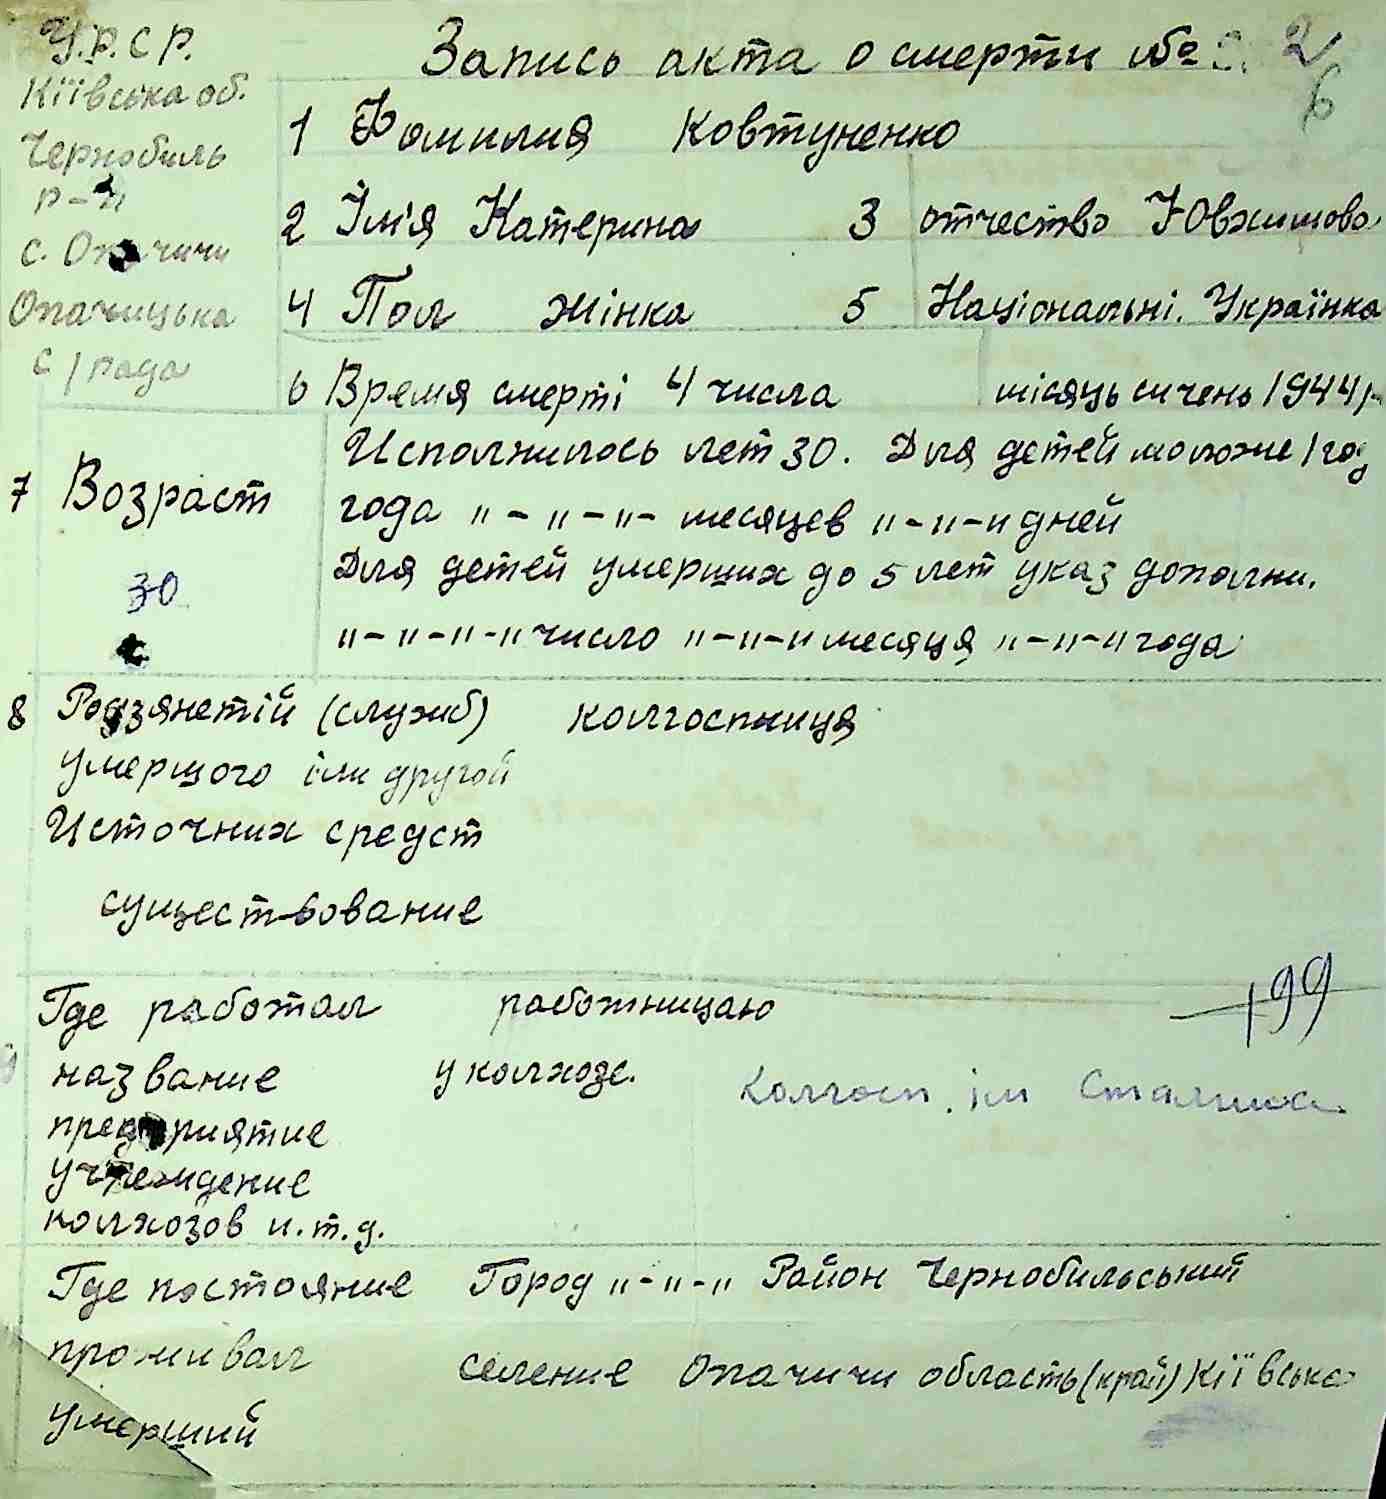 У.Р.С.Р.
Київська об.
Чернобиль
р-н
с. Опачичи
Опачицька
с/рада
Запись акта о смерти № 2
6
1 Фамилия Ковтуненко
2 Їм'я Катерина 3 отчество Ювхимова
4 Пол жінка 5 Національні. Українка
6 Время смерті 4 числа місяць сичень 1944 р.
7 Возраст
30
Исполнилось лет 30. Для детей моложе 1 год
года "-"-"- месяцев "-"-" дней
Для детей умерших до 5 лет указ дополни.
"-"-"-" число "-"-" месяця "-"-" года
8 Родзянетій (служб) колгоспниця
умершого іли другой
Источних средст
существование
Где работал работницаю
199
название у колхозе. Колгосп. ім Сталина
предприятие
учреждение
колхозов и.т.д.
Где постояние Город "-"-" Район Чернобильський
проживал селение Опачичи область (край) Київська
умерший